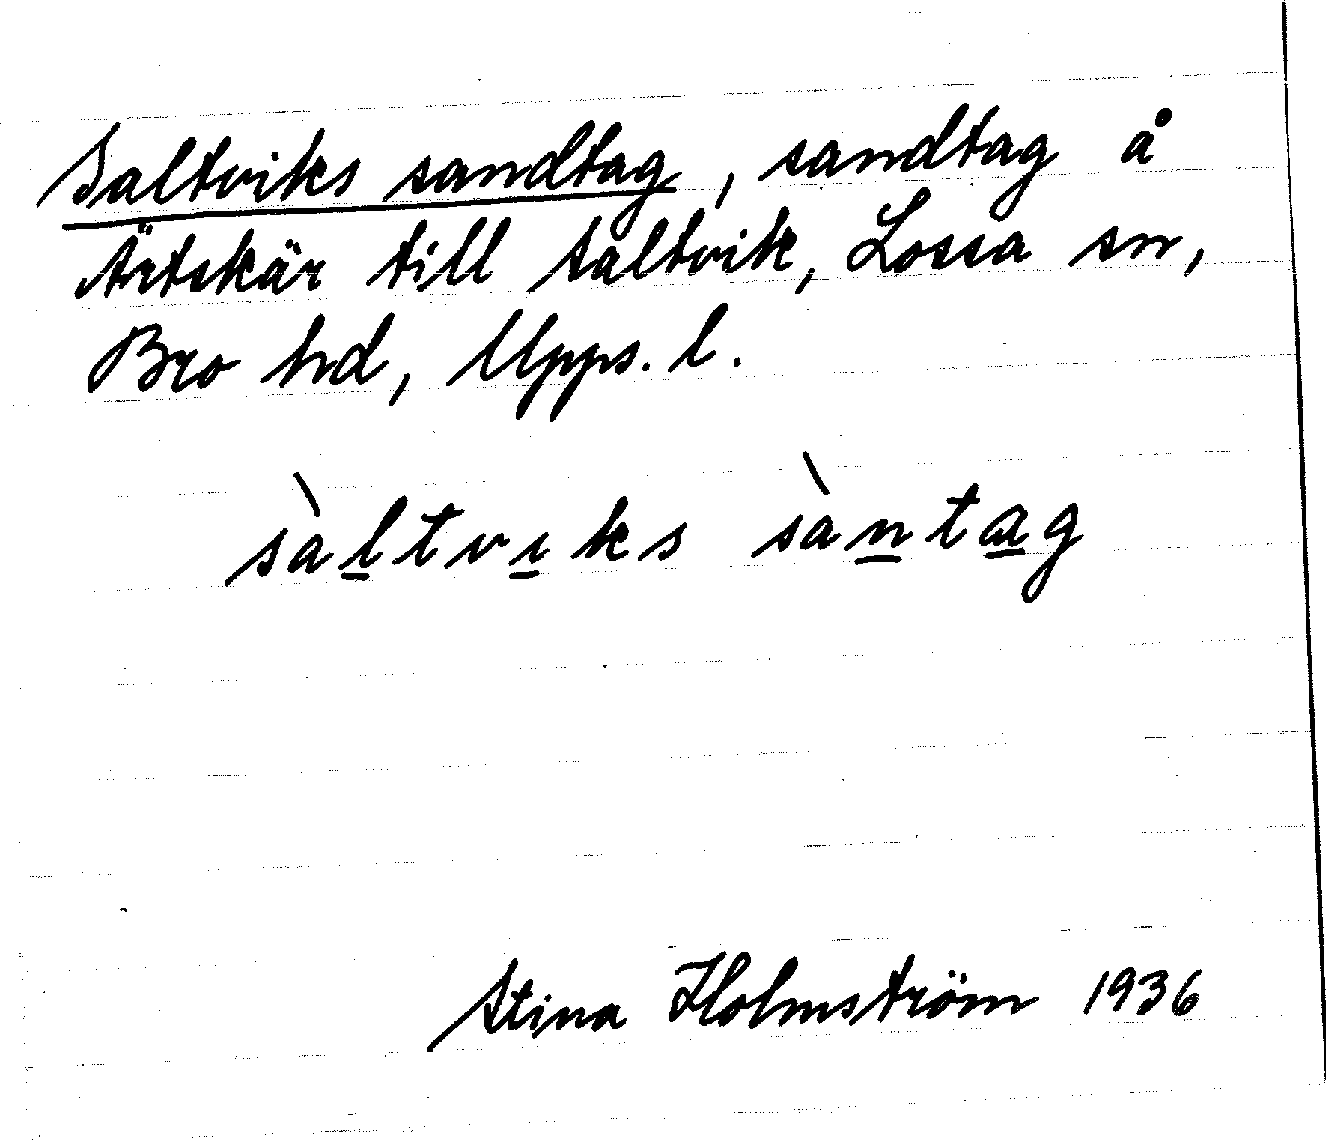 Saltviks sandtag, sandtag å
Ärtskär till Saltvik, Lossa sn,
Bro hd, Upps. l.
sàltvıks sàntag
Stina Holmström 1936